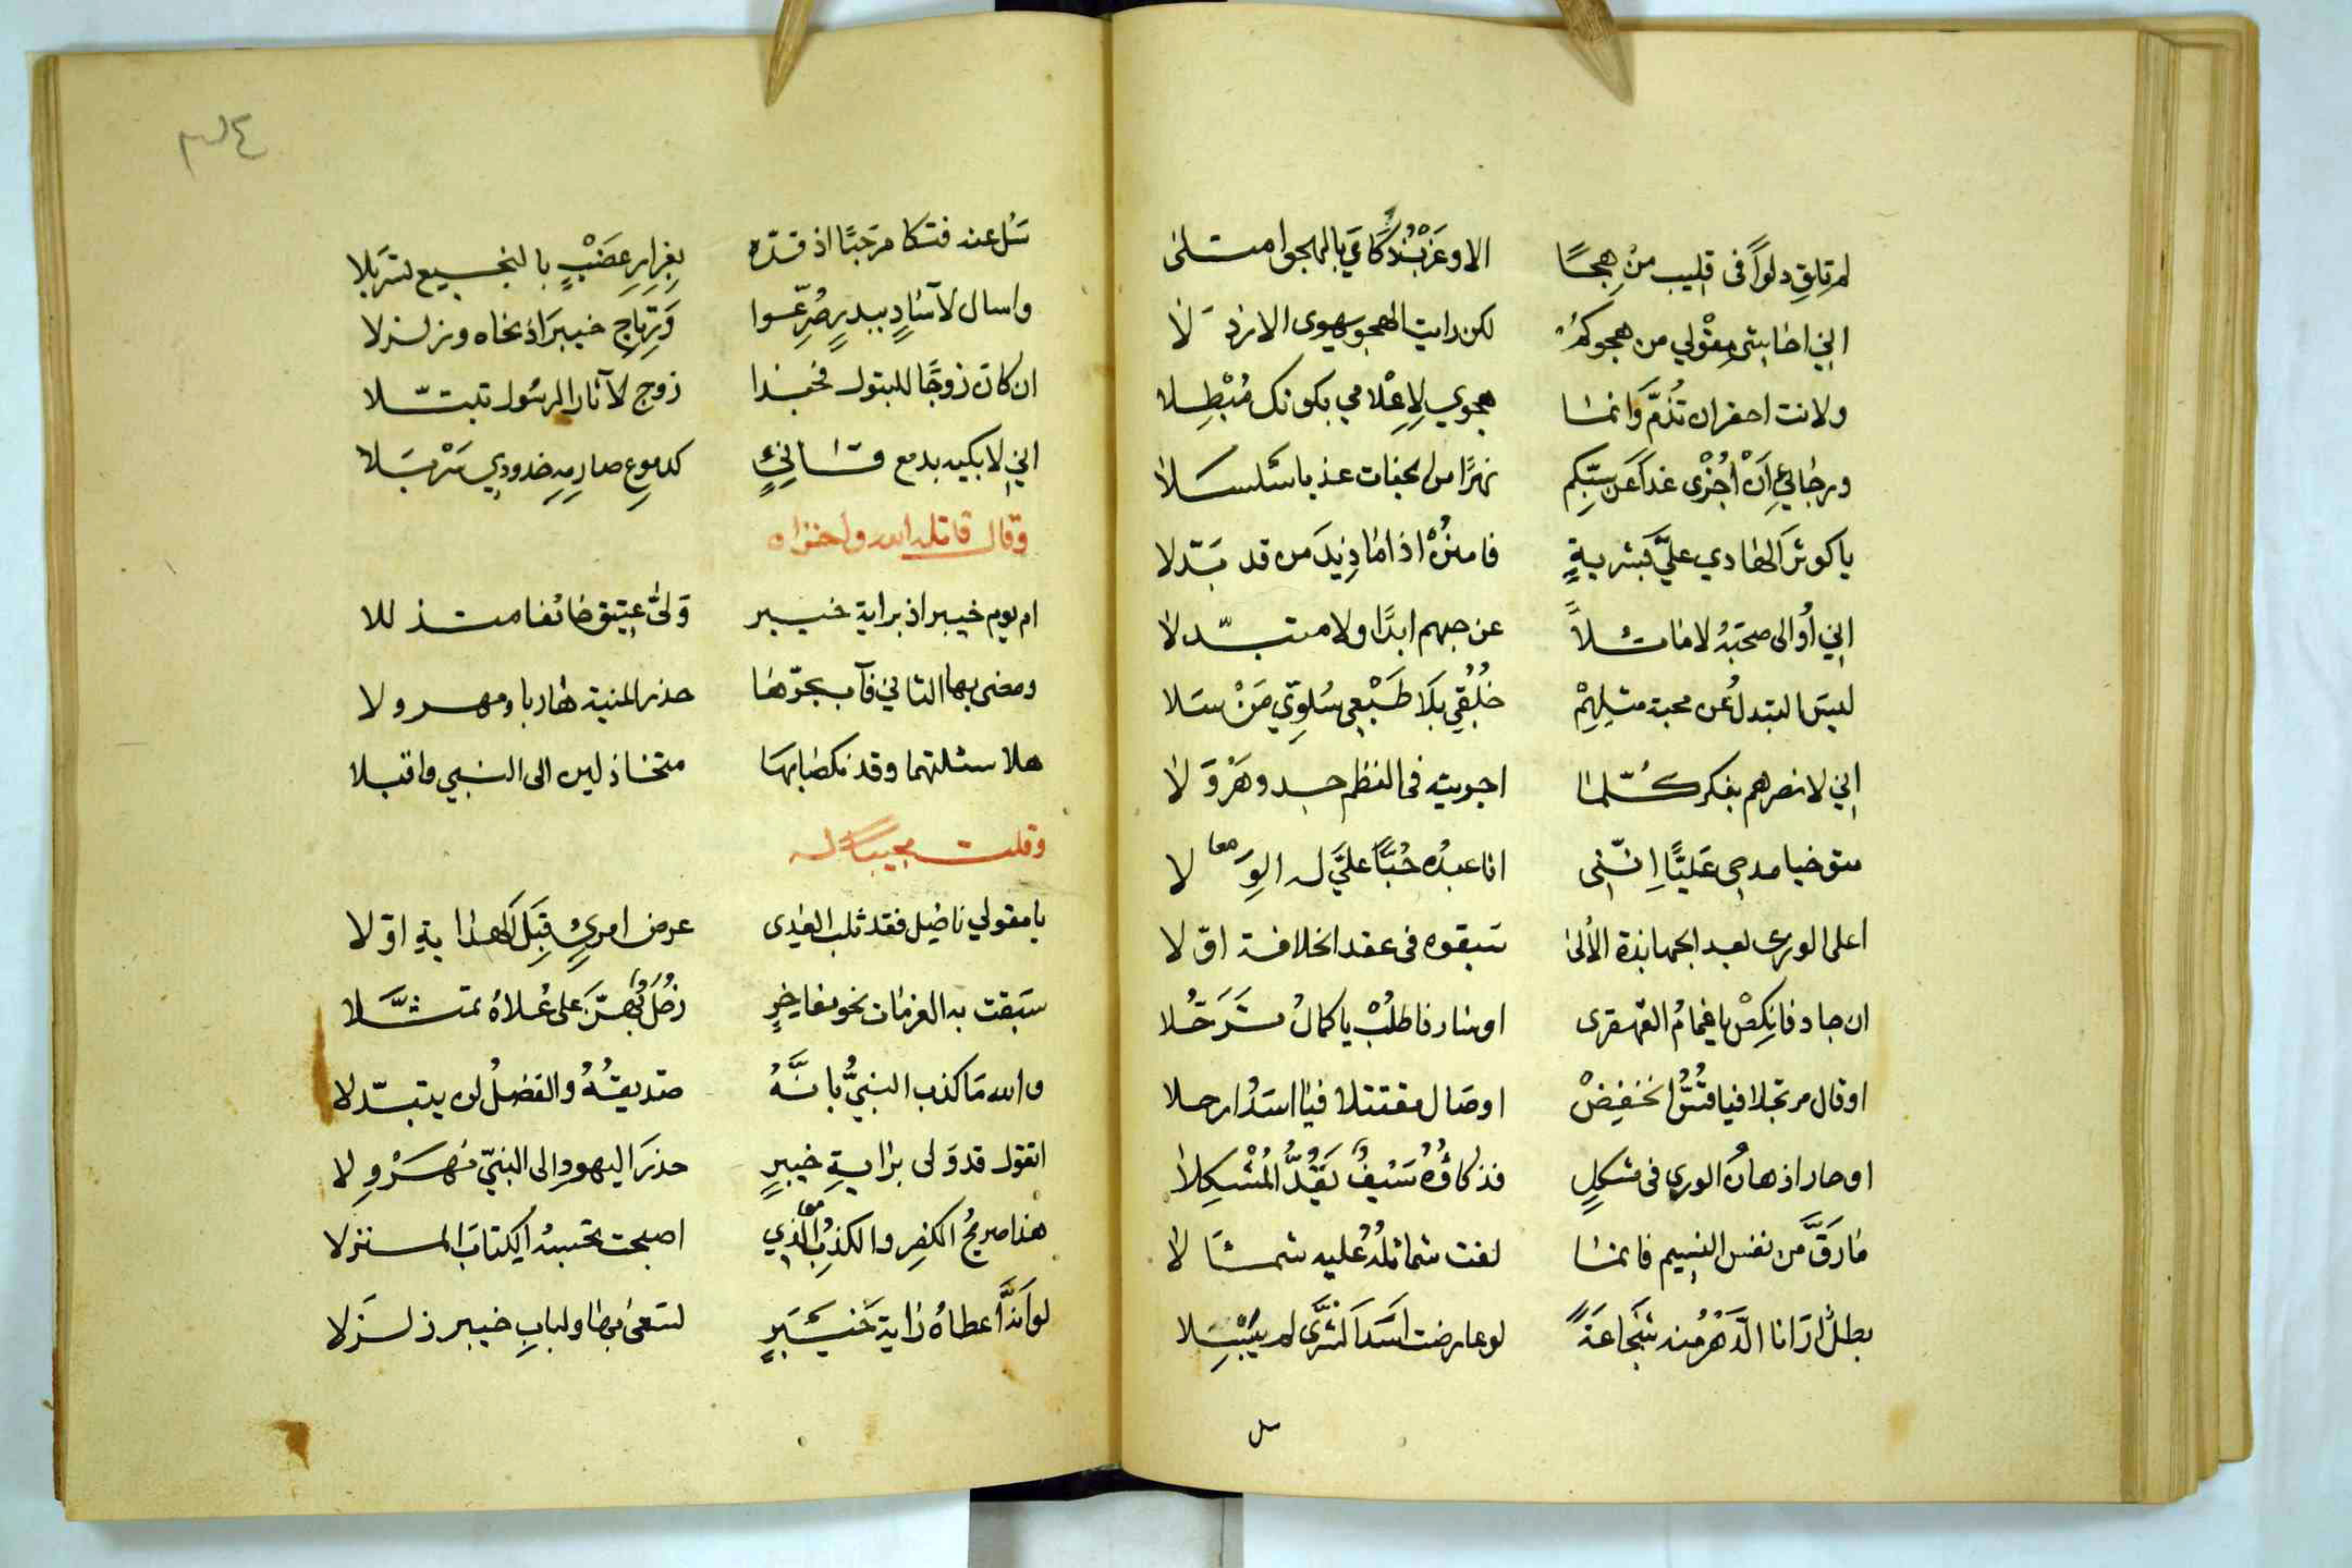 لم تلق دلوًا فى قليب من هجًا الا وغربُ ذكاءي بالهجو امتلى
اني اخابثى مقولي من هجوكم لكن رايت الهجو يهوى الارذلا
ولانت احقر ان تُذمَّ وانما هجوي لاِعْلامي بكونك مُبْطِلا
ورجائي اَنْ اُجْزى غدًا عن سبّكم نهرًا من الجنات عذبا سلسلا
يا كوثر الهادي عليَّ بشربةٍ فامنُنْ اذا ما ذيد من قد بَدّلا
اني أوالى صحبَهُ لا مائلاً عن حبهم ابدًا ولا متبدّلا
ليسَ التبدلُ عن محبة مثلِهِمْ خُلُقِي بَلَا طَبْعِي سُلوّي مَنْ سَلا
اني لانصرهم بفكر كلّما اجريته فى النظم جد وهَرْوَلا
متوخيا مدحى عَليًّا اِنّني انا عبدُه حُبًّا عليَّ له الوَِلا معا
اعلى الورى بعد الجهابذة الأُلىٰ سَبقوه فى عقد الخلافة اوّلا
ان جاد فانكِصْ يا غمامُ القهقرى او سار فاطلُبْ يا كمالُ تَرَحُّلا
او قال مرتجلا فيا قُسُّ انخفِضْ او صال مقتتلا فيا اسَدُ ارحلا
او حار اذهانُ الورى فى مشكلٍ فذكاؤُهُ سَيْفٌ يَقُدُّ المُشْكِلا
ما رَقَّ من نفس النسيم فانما لفت شمائلُهُ عليه شمألا
بطلٌ ارانا الدَّهْرُ منه شجاعةً لو عارضت اسَدَ الشَّرَى لم يُبْسِلا
سل
سَل عنه فتكا مرحبًا اذ قدّه بِغِرارِ عَضْبٍ بالنجيع تسَربَلا
واسال لآسَادٍ ببدرٍ صُرّعوا وَرِتاجِ خيبرَ اذ نحاه وزلزلا
ان كان زوجًا للبتول فحبذا زوج لآثار الرسُول تبتّلا
اني لابكيه بدمع قانئٍ كدموعِ صارمِهِ خدودي سَرْبَلا
وقال قاتله الله واخزاه
ام يوم خيبر اذ براية خيبر وَلىّٰ عتيق خائفا متذللا
ومضى بها الثاني فآب يجرّها حذر المنية هاربا ومهرولا
هلا سئلتهما وقد نكصا بها متخاذلين الى النبي واقبلا
وقلت مجيبًا له
يا مقولي ناضِل فقد ثلب العِدى عرض امرئٍ قِبَلَ الهدايةِ اوّلا
سَبَقت به العزمات نحو مفاخِرٍ زُحَلٌ يُقَصِّرَ على عُلاهُ تمثَّلا
والله مَا كذب النبيُّ بانَّهُ صديقُهُ والفضلُ لن يتبدّلا
اتقول قد وَلى برايةِ خيبرٍ حذرَ اليهودِ الى النبيّ مُهَرْوِلا
هذا صريحُ الكفرِ والكذِبُِ الذي معا اصبحت تحسبُه الكتابَ المنزلا
لو اَنَّهُ اعطاهُ رايةَ خَيبَرٍ لسَعَى بها ولبابِ خيبر زلزلا